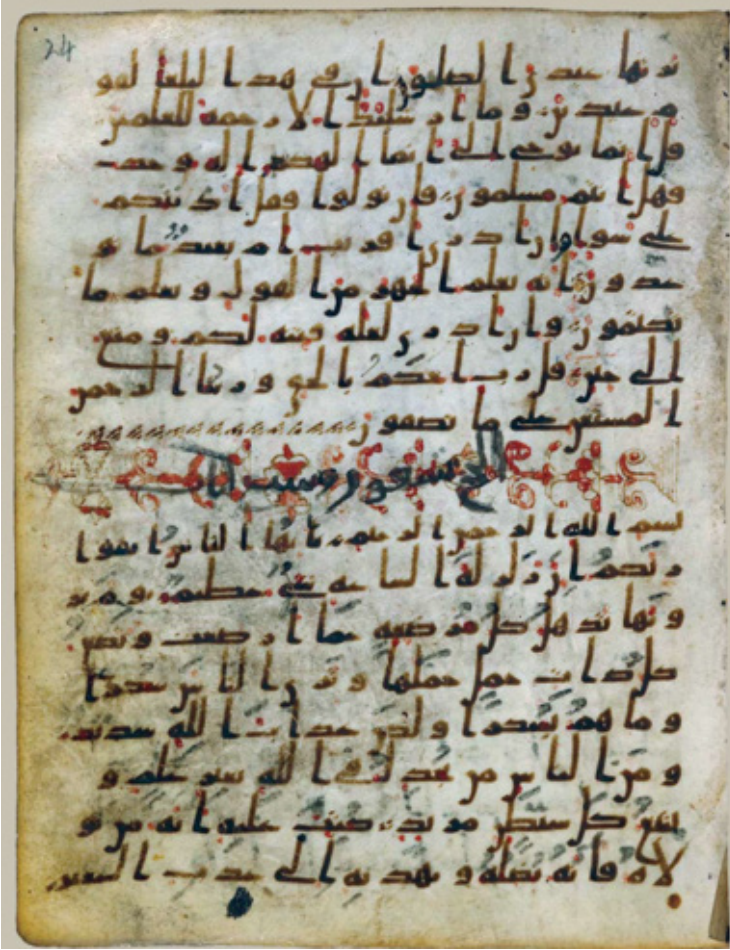 24
يرثها عبدي الصلحون ان في هذا لبلغا لقو
م عبدين وما ارسلنك الا رحمة للعلمين
قل انما يوحى الي انما الهكم اله وحد
فهل انتم مسلمون فان تولوا فقل اذنتكم
على سواء وان ادري اقريب ام بعيد ما تو
عدون انه يعلم الجهر من القول ويعلم ما
تكتمون وان ادري لعله فتنة لكم ومتع
الى حين قل رب احكم بالحق وربنا الرحمن
المستعن على ما تصفون
الحج سبعون وست ايات
بسم الله الرحمن الرحيم يايها الناس اتقوا
ربكم ان زلزلة الساعة شيء عظيم يوم تر
ونها تذهل كل مرضعة عما ارضعت وتضع
كل ذات حمل حملها وترى الناس سكرى
وما هم بسكرى ولكن عذاب الله شديد
ومن الناس من يجدل في الله بغير علم و
يتبع كل شيطن مريد كتب عليه انه من تو
لاه فانه يضله ويهديه الى عذاب السعير